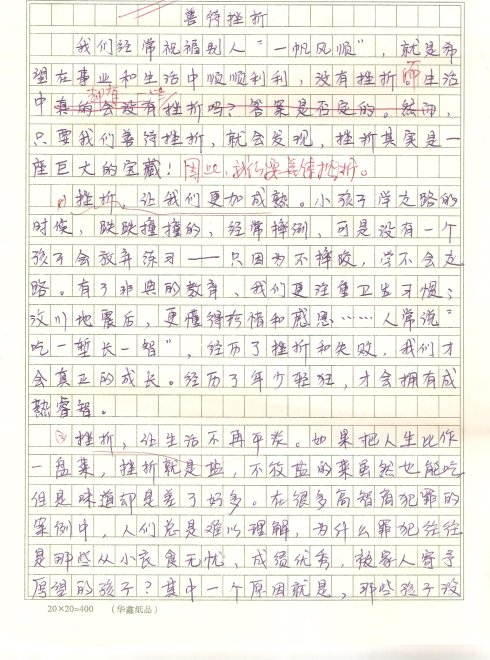 善待挫折
我们经常祝福别人“一帆风顺”，就是希
望在事业和生活中顺顺利利，没有挫折。而生活
中真的会没有挫折吗？答案是否定的。然而，
都有一些
只要我们善待挫折，就会发现，挫折其实是一
座巨大的宝藏！因此，我们要善待挫折。
①挫折，让我们更加成熟。小孩子学走路的
时候，跌跌撞撞的，经常摔倒，可是没有一个
孩子会放弃练习——只因为不摔跤，学不会走
路。有了非典的教育，我们更注重卫生习惯；
汶川地震后，更懂得珍惜和感恩……人常说“
吃一堑长一智”，经历了挫折和失败，我们才
会真正的成长。经历了年少轻狂，才会拥有成
熟睿智。
②挫折，让生活不再平淡。如果把人生比作
一盘菜，挫折就是盐，不放盐的菜虽然也能吃
但是味道却是差了好多。在很多高智商犯罪的
案例中，人们总是难以理解，为什么罪犯往往
是那些从小衣食无忧，成绩优秀，被家人寄予
厚望的孩子？其中一个原因就是，那些孩子没
20×20=400 （华鑫纸品）